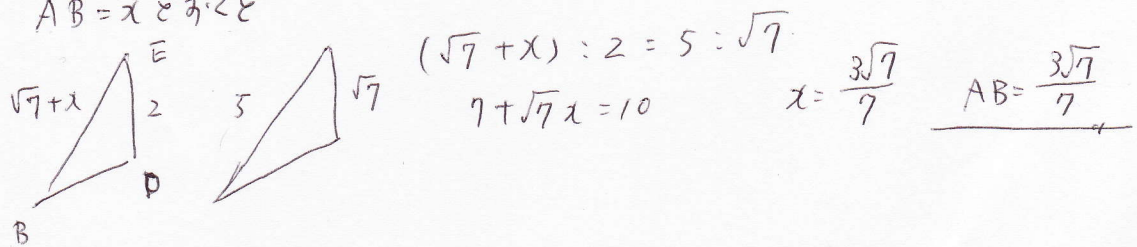 AB=xとおくと
E
√7+x
2
D
B
5
√7
(√7+x):2=5:√7
7+√7x=10
x=3√7/7
AB=3√7/7